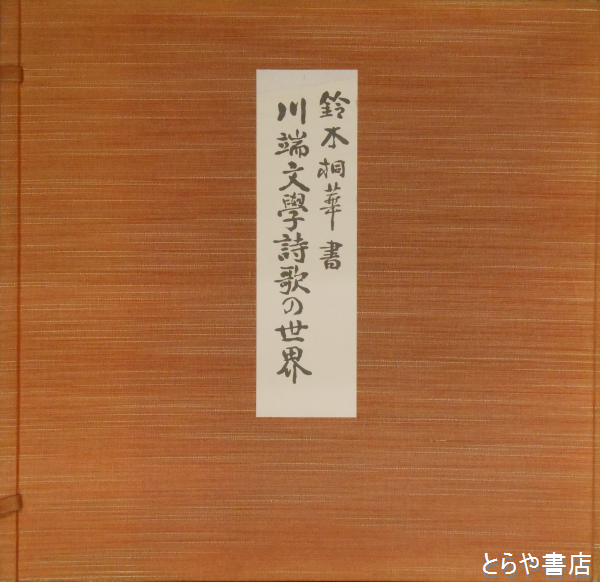 鈴木桐華書
川端文學詩歌の世界
とらや書店